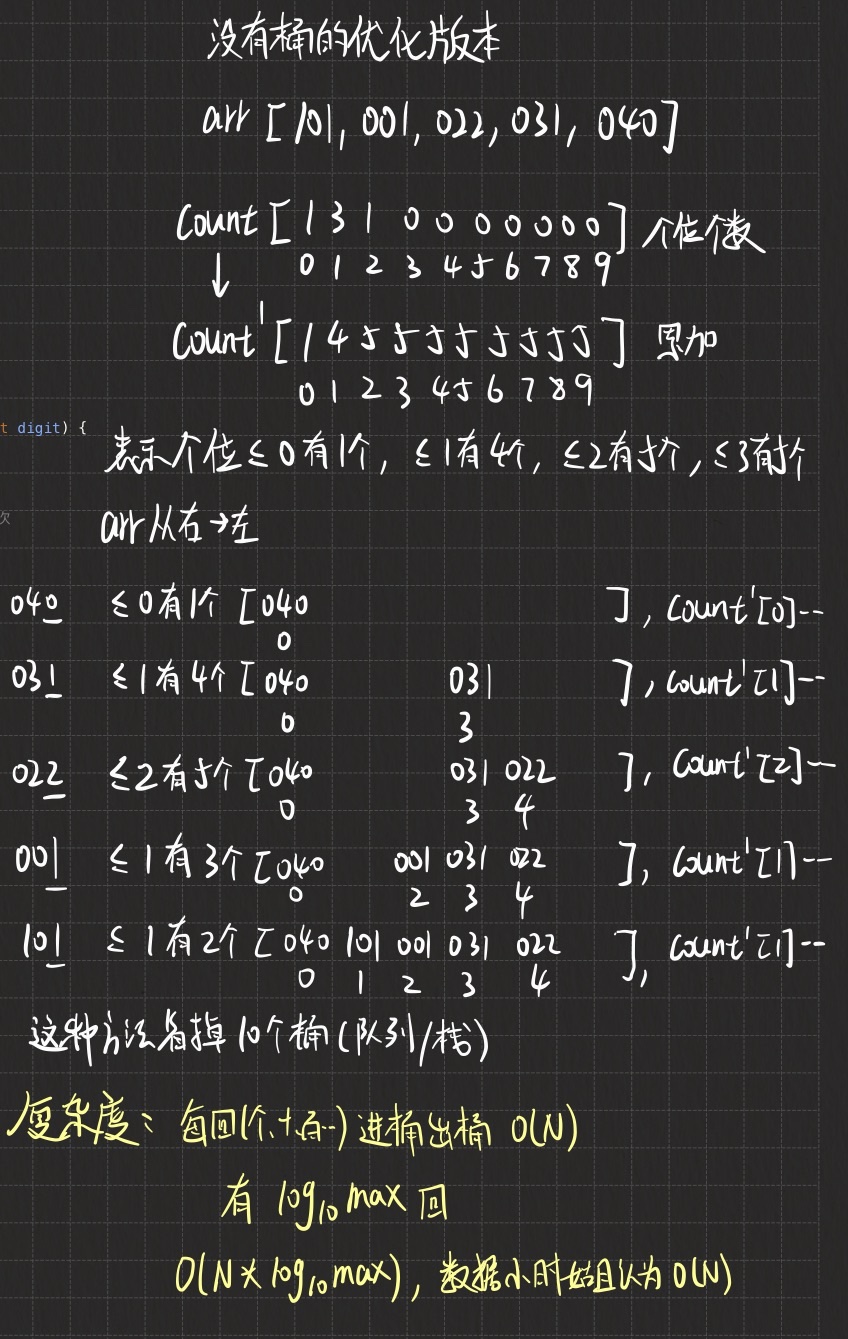 没有桶的优化版本
arr [101, 001, 022, 031, 040]
Count [1 3 1 0 0 0 0 0 0 0] 个位个数
0 1 2 3 4 5 6 7 8 9
↓
Count' [1 4 5 5 5 5 5 5 5 5] 累加
0 1 2 3 4 5 6 7 8 9
t digit) {
表示个位≤0有1个, ≤1有4个, ≤2有5个, ≤3有5个
次
arr从右→左
040 ≤0有1个 [040 ], Count'[0]--
0
031 ≤1有4个 [040 031 ], Count'[1]--
0 3
022 ≤2有5个 [040 031 022 ], Count'[2]--
0 3 4
001 ≤1有3个 [040 001 031 022 ], Count'[1]--
0 2 3 4
101 ≤1有2个 [040 101 001 031 022 ], Count'[1]--
0 1 2 3 4
这种方法省掉10个桶(队列/栈)
复杂度: 每回(个、十、百…)进桶出桶 O(N)
有 log₁₀max 回
O(N×log₁₀max), 数据小时姑且认为O(N)